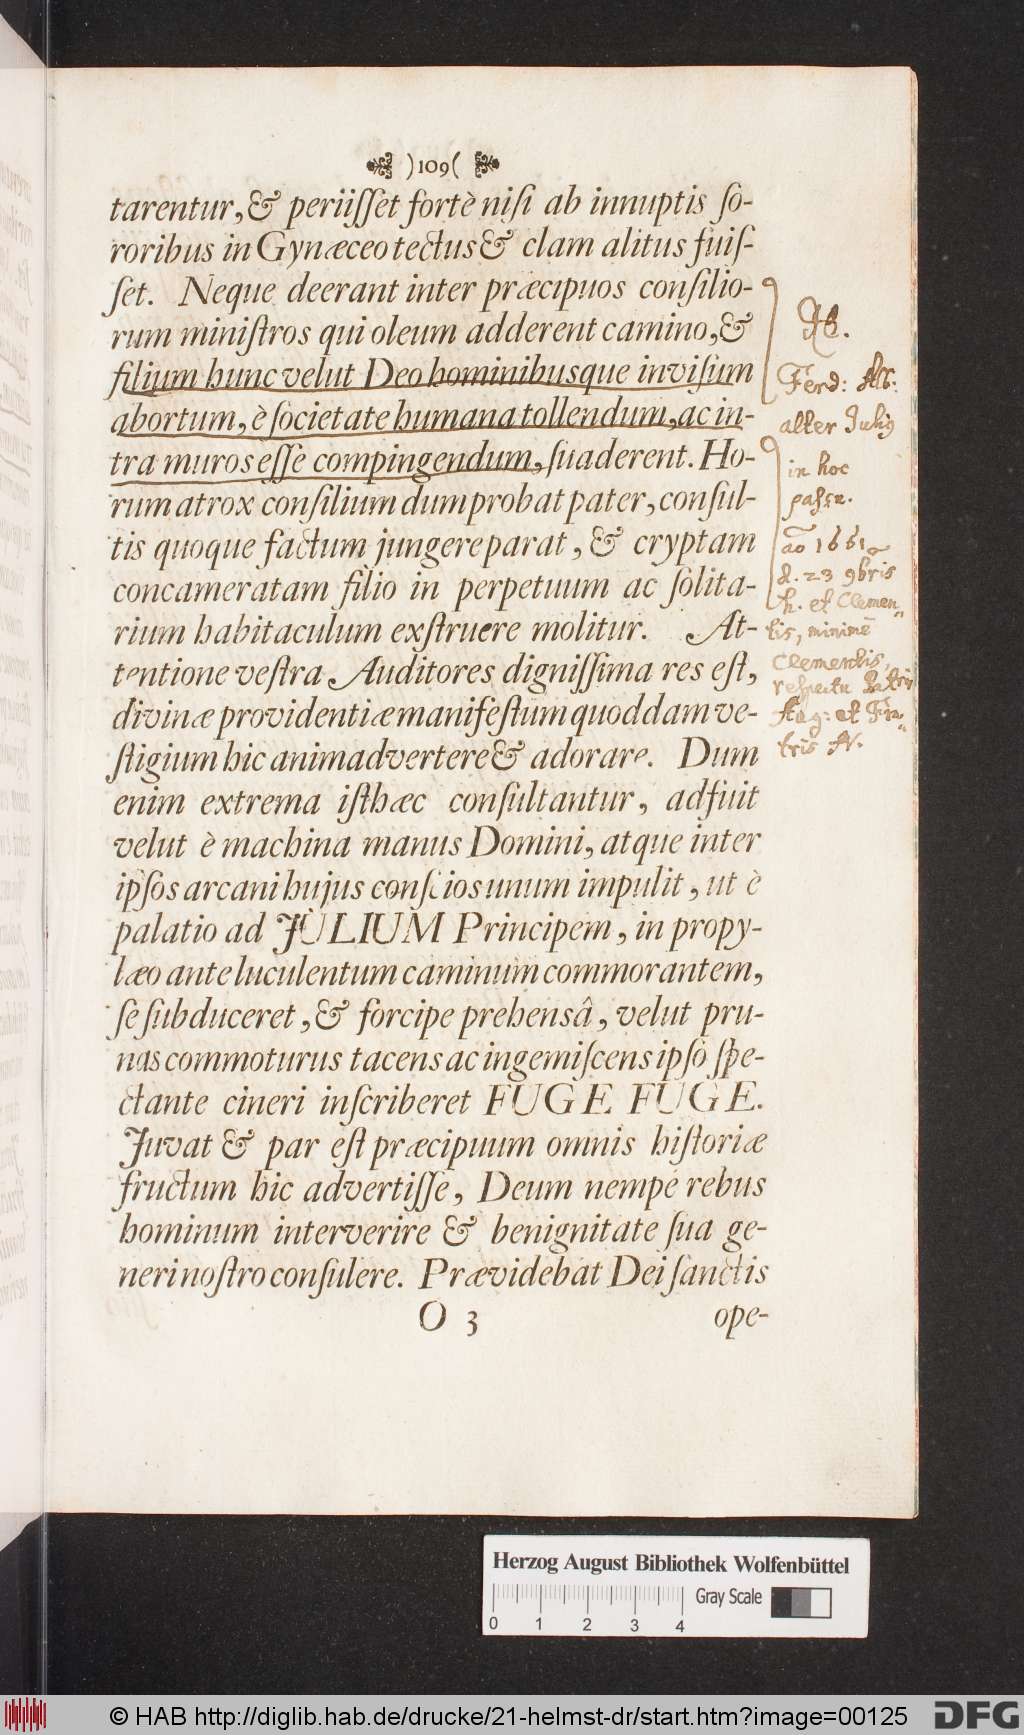 )109(
tarentur, & periisſet fortè niſi ab innuptis ſo-
roribus in Gynæceo tectus & clam alitus fuiſ-
ſet. Neque deerant inter præcipuos conſilio-
rum miniſtros qui oleum adderent camino, &
filium hunc velut Deo hominibusque inviſum
abortum, è ſocietate humana tollendum, ac in-
tra muros eſſe compingendum, ſuaderent. Ho-
rum atrox conſilium dum probat pater, conſul-
tis quoque factum jungere parat, & cryptam
concameratam filio in perpetuum ac ſolita-
rium habitaculum exſtruere molitur. At-
tentione veſtra Auditores digniſſima res eſt,
divinæ providentiæ manifeſtum quoddam ve-
ſtigium hic animadvertere & adorare. Dum
enim extrema iſthæc conſultantur, adfuit
velut è machina manus Domini, atque inter
ipſos arcani hujus conſcios unum impulit, ut è
palatio ad JULIUM Principem, in propy-
læo ante luculentum caminum commorantem,
ſe ſubduceret, & forcipe prehensâ, velut pru-
nas commoturus tacens ac ingemiſcens ipſo ſpe-
ctante cineri inſcriberet FUGE FUGE.
Juvat & par eſt præcipuum omnis hiſtoriæ
fructum hic advertiſſe, Deum nempe rebus
hominum interverire & benignitate ſua ge-
neri noſtro conſulere. Prævidebat Dei ſanctis
O 3 ope-
Ferd: Alb:
alter Julius
in hoc
paſsu.
ao 1661
d. 23 9bris
et Clemen-
tis, minimè
Clementis,
respectu Patris
Aug: et Fra-
tris A.
Herzog August Bibliothek Wolfenbüttel
Gray Scale
0 1 2 3 4
© HAB http://diglib.hab.de/drucke/21-helmst-dr/start.htm?image=00125
DFG